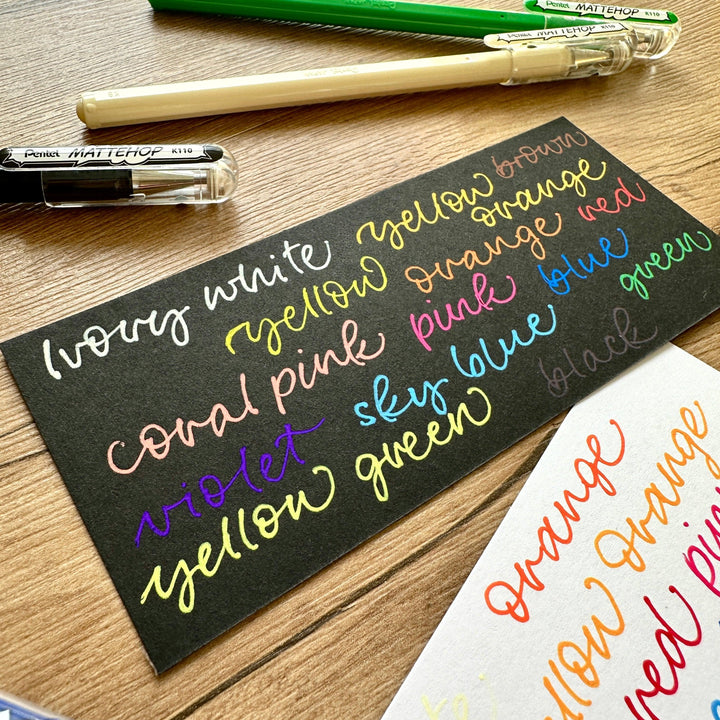 Pentel MATTEHOP K110
Pentel MATTEHOP K110
Pentel MATTEHOP K110
Ivory white
yellow orange
brown
yellow
orange
red
coral pink
pink
blue
green
violet
sky blue
black
yellow green
orange
yellow orange
red